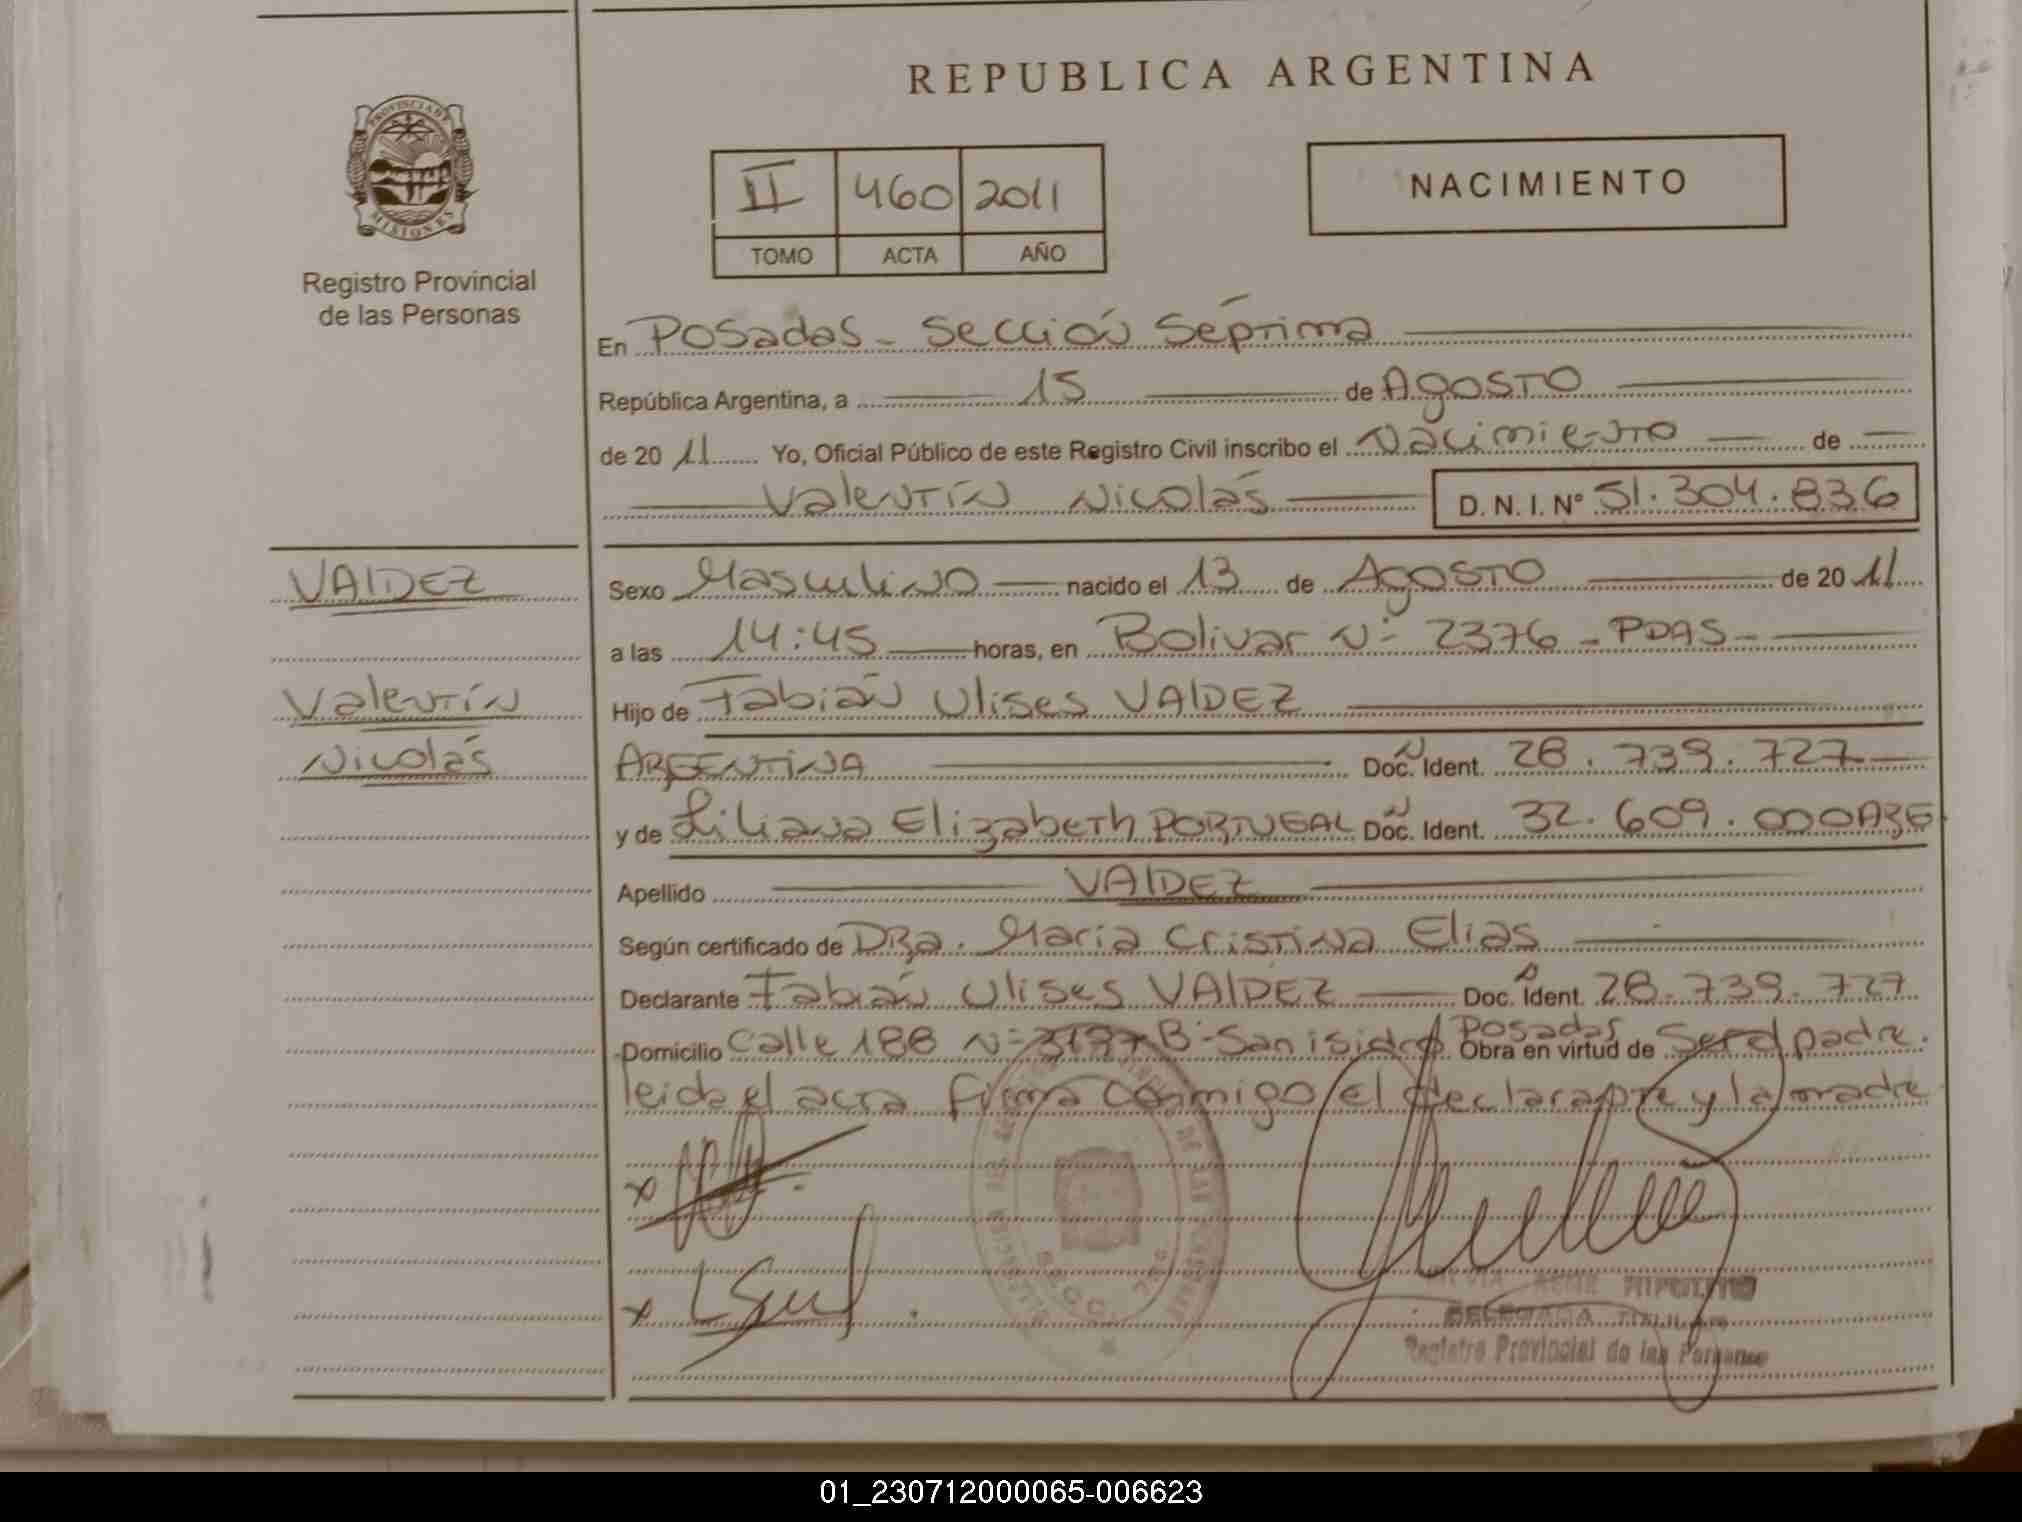 REPUBLICA ARGENTINA
PROVINCIA DE MISIONES
Registro Provincial
de las Personas
II 460 2011
TOMO ACTA AÑO
NACIMIENTO
En Posadas - Sección Séptima
República Argentina, a 15 de Agosto
de 20 11 Yo, Oficial Público de este Registro Civil inscribo el Nacimiento de
Valentín Nicolás D. N. I. N° 51.304.836
VALDEZ
Valentín
Nicolás
Sexo Masculino nacido el 13 de Agosto de 20 11
a las 14:45 horas, en Bolivar N° 2376 - PDAS -
Hijo de Fabián Ulises VALDEZ
ARGENTINA Doc. Ident. 28.739.727
y de Liliana Elizabeth PORTUGAL Doc. Ident. 32.609.000 ARG
Apellido VALDEZ
Según certificado de DRa. María Cristina Elias
Declarante Fabián Ulises VALDEZ Doc. Ident. 28.739.727
Domicilio Calle 188 N° B° San isidro Posadas Obra en virtud de Ser el padre.
leida el acta firma conmigo el declarante y la madre
DELEGADA TITULAR
Registro Provincial de las Personas
01_230712000065-006623